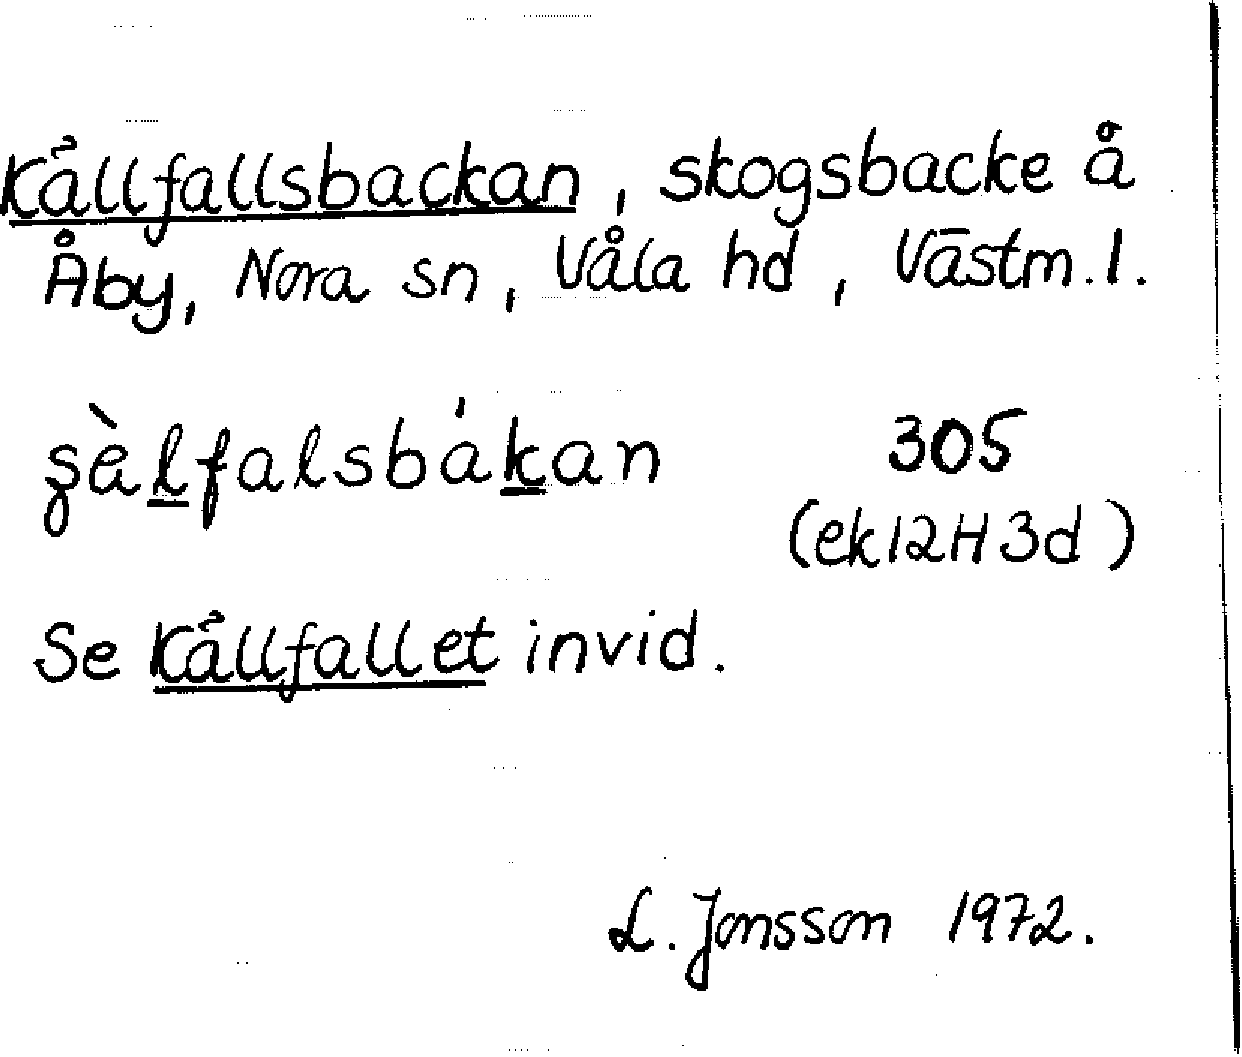 Källfallsbackan, skogsbacke å
Åby, Nora sn, Våla hd, Västm. l.
ʂὰl̲falsbák̲an 305
(ek 12H3d)
Se Källfallet invid.
L. Jonsson 1972.